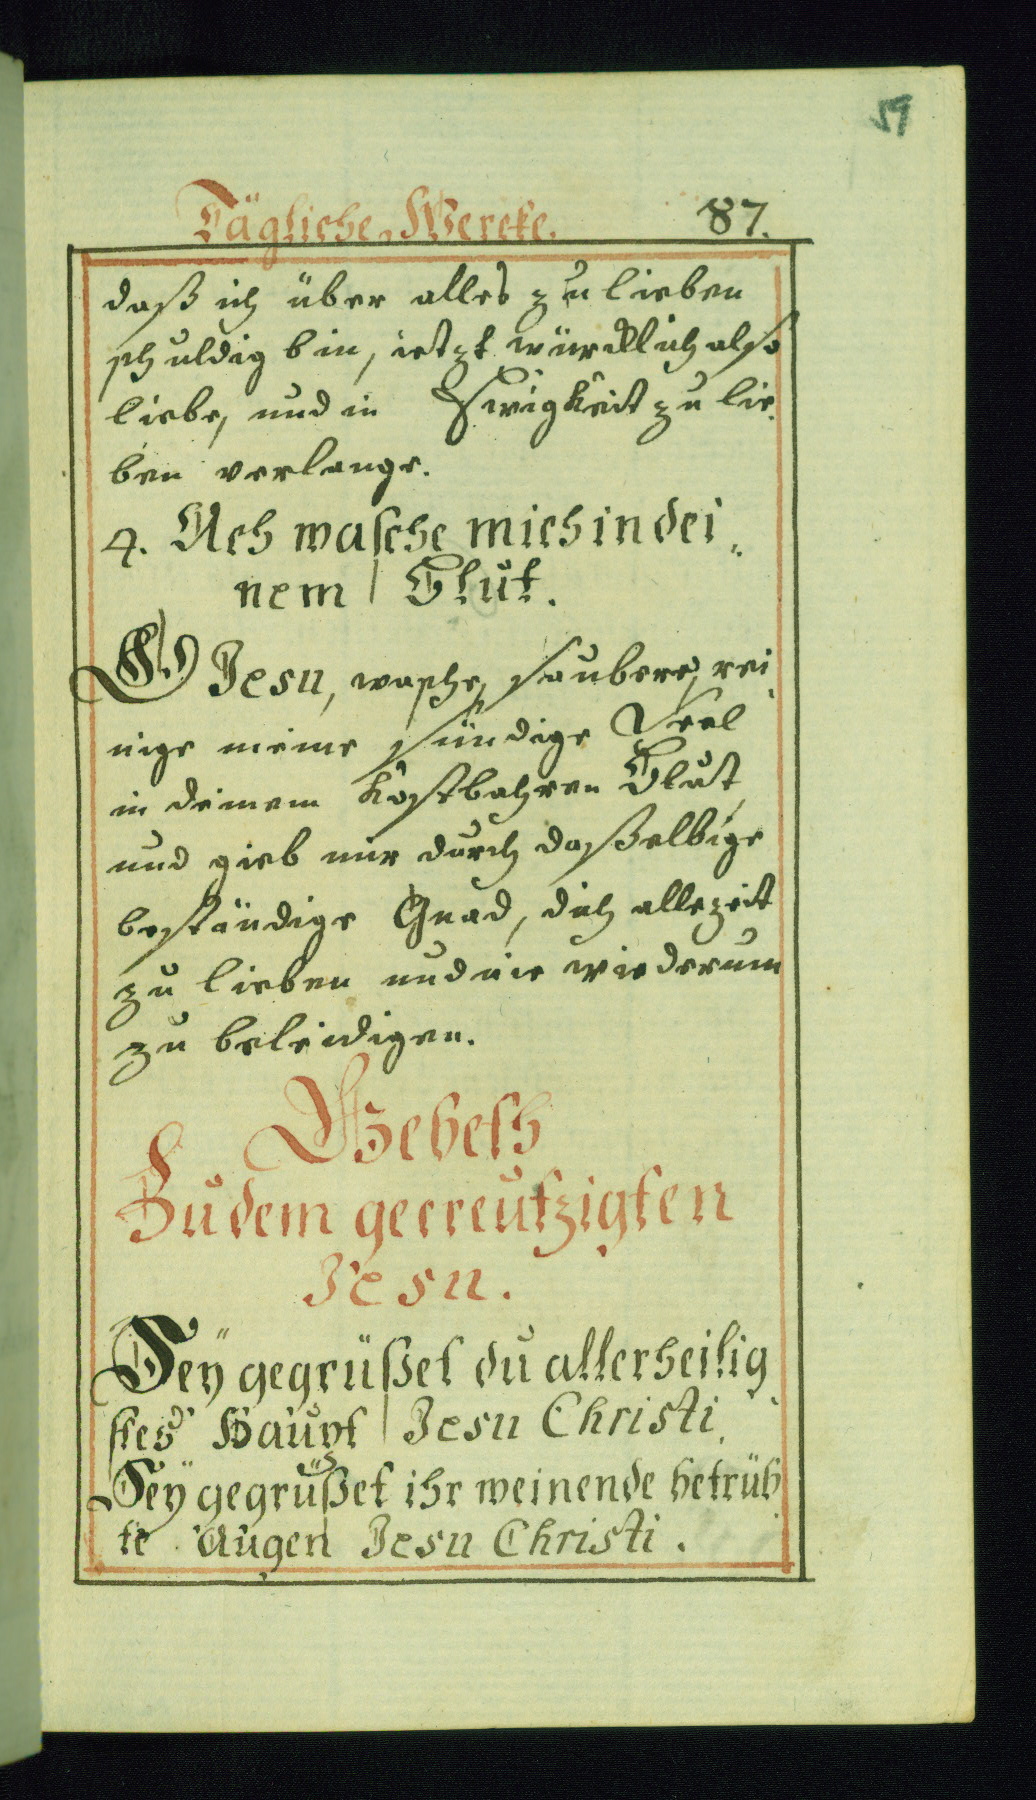 59
Tägliche Wercke. 87.
daß ich über alles zu lieben
schuldig bin, ietzt würcklich also
liebe, und in Ewigkeit zu lie„
ben verlange.
4. Ach wasche mich in dei„
nem Blut.
O Jesu, wasche, saubere, rei„
nige meine sündige Seel
in deinem kostbahren Blut,
und gieb mir durch daßelbige
beständige Gnad, dich allezeit
zu lieben und nie wiederum
zu beleidigen.
Gebeth
Zu dem gecreutzigten
Jesu.
Seÿ gegrüßet du allerheilig„
stes Haupt Jesu Christi.
Seÿ gegrüßet ihr weinende betrüb„
te Augen Jesu Christi.